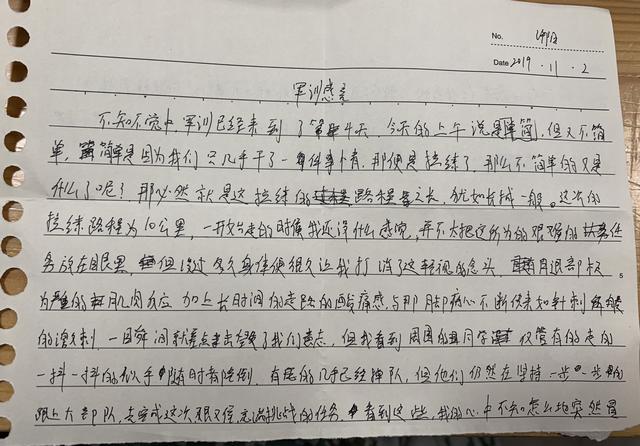 No.
Date 2019 . 11 . 2
军训感言
不知不觉中,军训已经来到了第4天,今天的上午说是简单,但又不简
单,简单是因为我们只几乎干了一件事情,那便是拉练了,那么不简单的又是
什么了呢?那必然就是这拉练的路程之长,犹如长城一般。这次的
拉练路程为10公里,一开始走的时候我还没什么感觉,并不大把这所为的艰难的任
务放在眼里,但没过多久身体便很久让我打消了这轻视的念头,腿部
肌肉 加上长时间的走路的酸痛感与那脚底心不断传来如针刺
的 一瞬间就差点击垮了我们意志,但我看到周围的同学 仅管有的走的
一抖一抖的似乎随时都能倒,有的几乎已经掉队,但他们仍然在坚持一步一步的
跟上大部队,去完成这次艰又充满挑战的任务,看到这些,我的心中不知怎么地突然冒